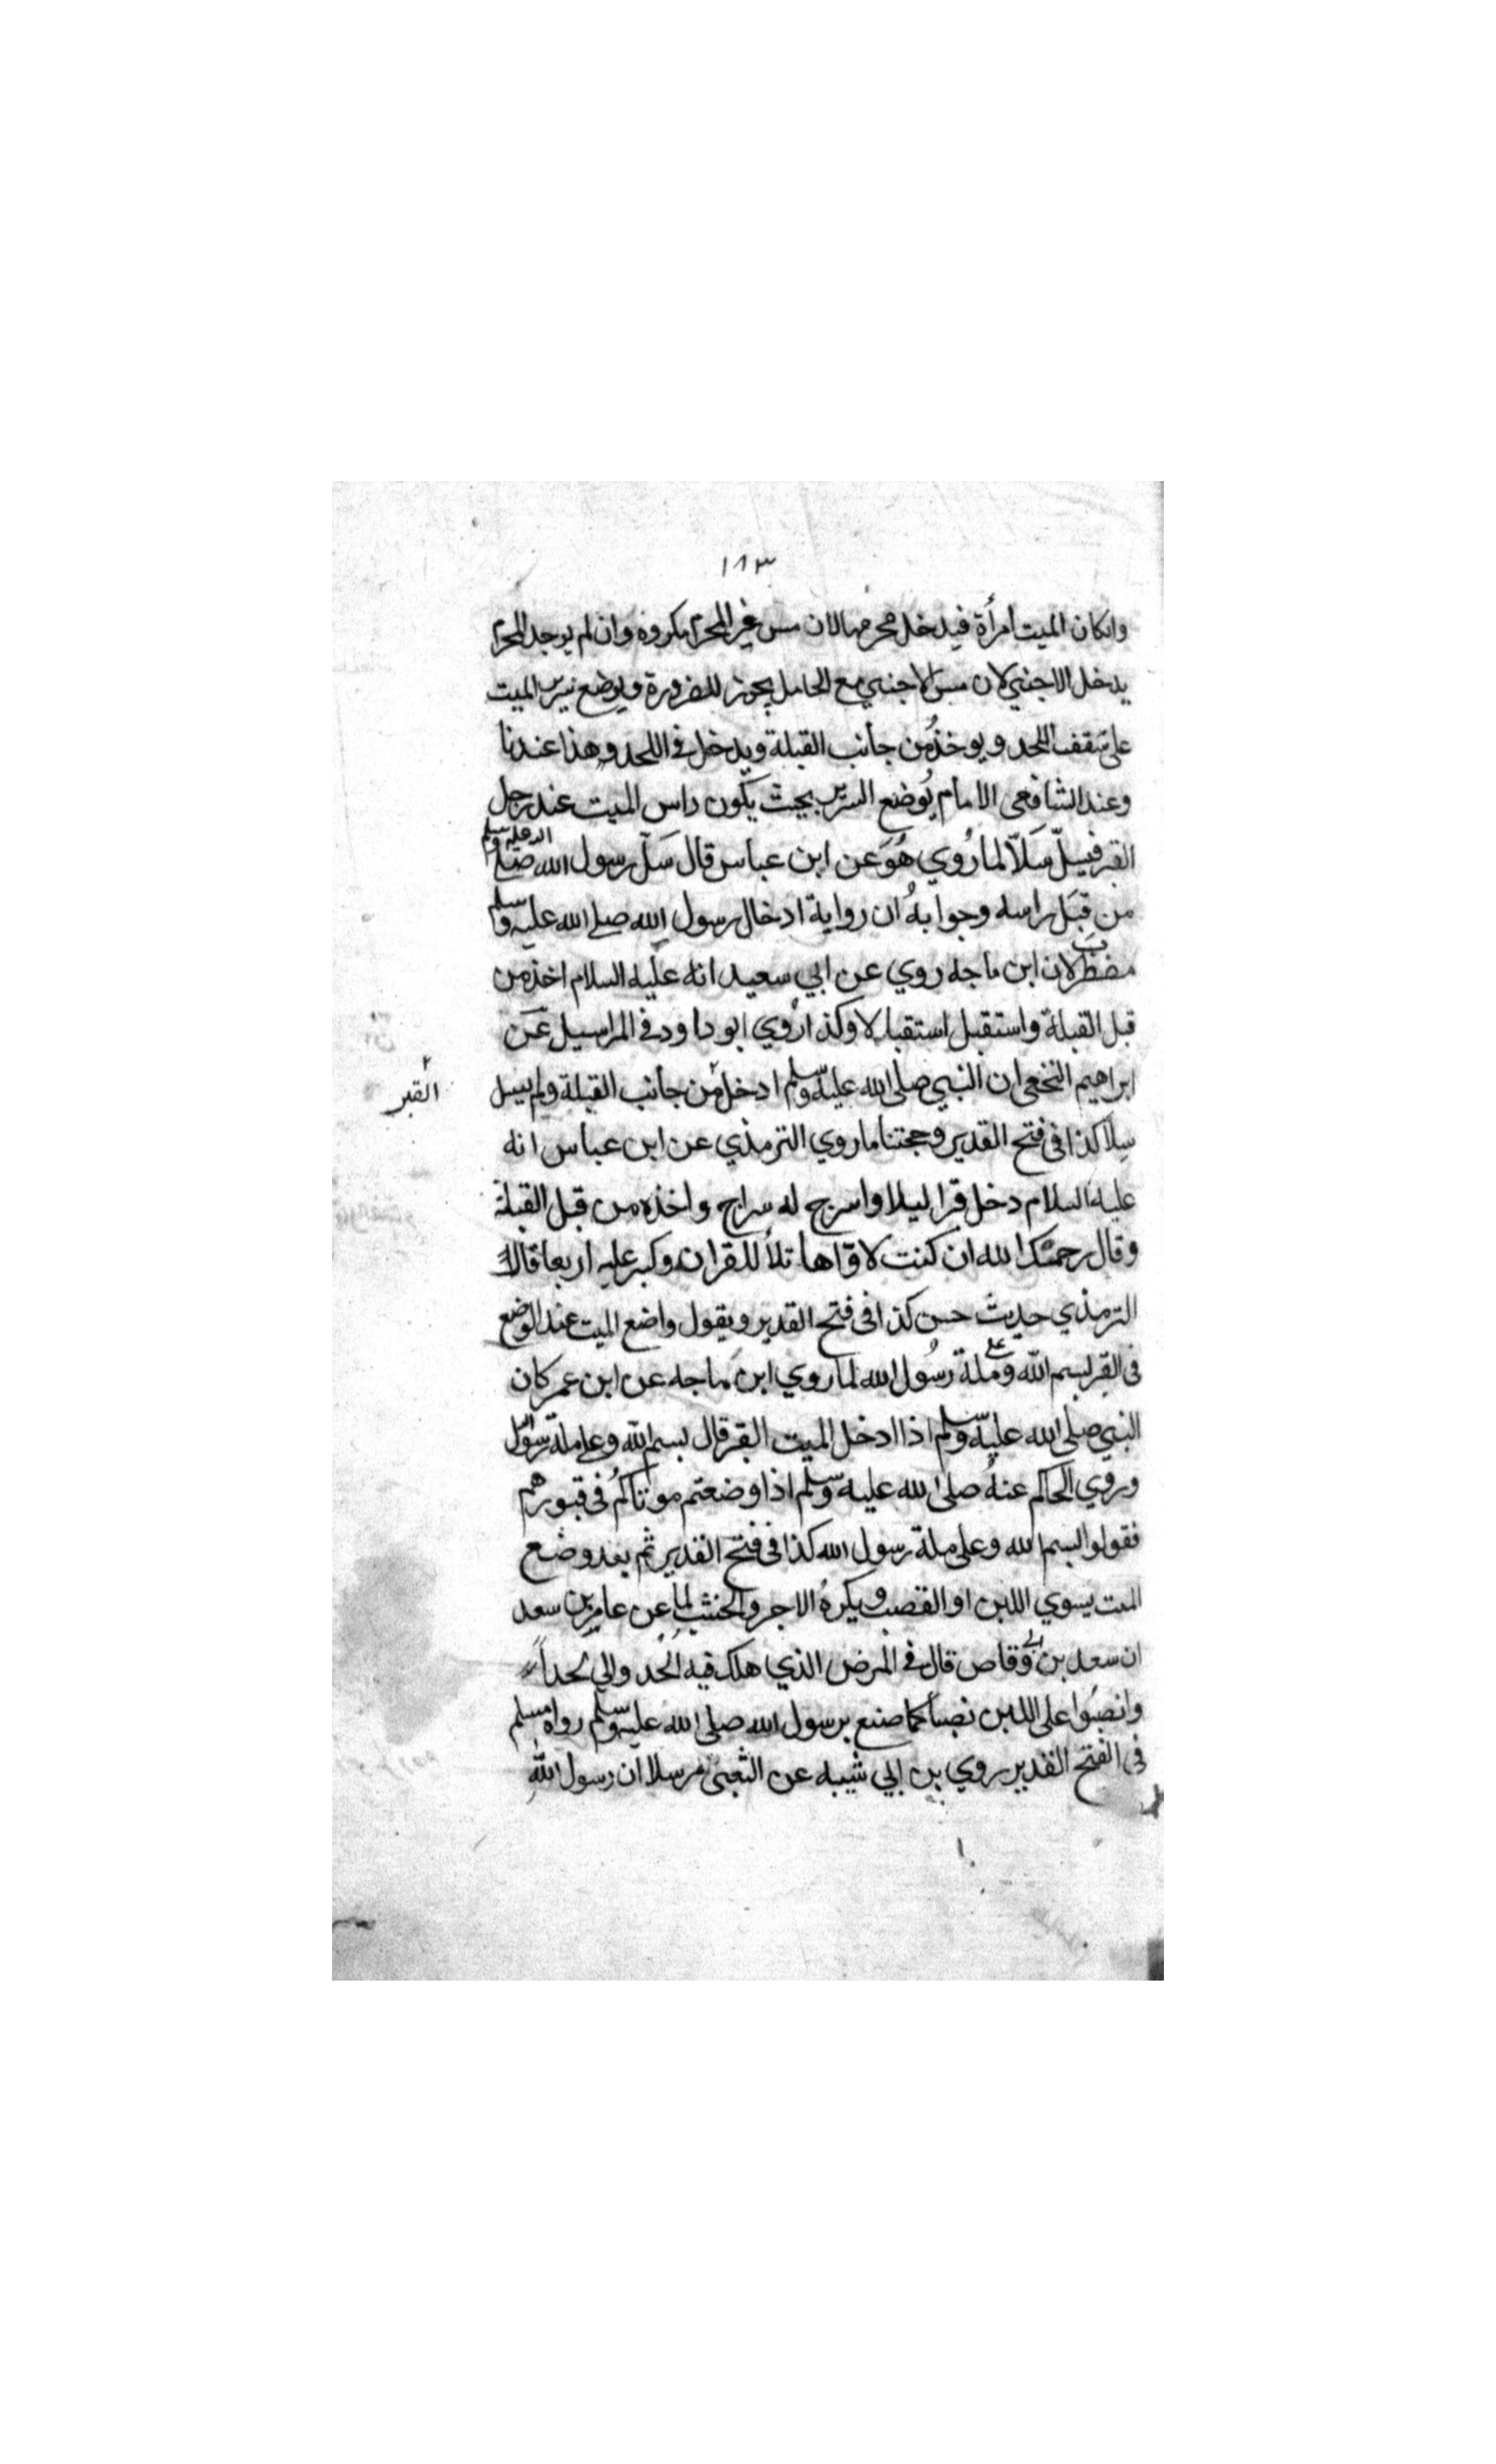 ١٨٣
وانكان الميت امرأة فيدخل محرمها لان مس غير المحرم مكروه وان لم يوجد المحرم
يدخل الاجنبي لان مس الاجنبي مع الحامل يجوز للضرورة ويوضع سرير الميت
على شقف اللحد ويوخذ من جانب القبلة ويدخل في اللحد وهذا عندنا
وعند الشافعي الامام يوضع السرير بحيث يكون راس الميت عند رجل
القبر فيسلّ سَلاّ لما رُوي هُوَ عن ابن عباس قال سَلّ رسول الله صلى الله عليه وسلم
من قبَل راسه وجوابهُ ان رواية ادخال رسول الله صلى الله عليه وسلم
مضطرب لان ابن ماجه روي عن ابي سعيد انه عليه السلام اخذ من
قبل القبلة واستقبل استقبالا وكذا رُوي ابو داود في المراسيل عن
ابراهيم النخعي ان النبي صلى الله عليه وسلم ادخل من جانب القبلة ولم يسل
القبر
سلا كذا في فتح القدير وحجتنا ما روي الترمذي عن ابن عباس انه
عليه السلام دخل قبرا ليلا واسرج له سراج واخذه من قبل القبلة
وقال رحمك الله ان كنت لاوّاها تلأ للقران وكبر عليه اربعا قال
الترمذي حديث حسن كذا في فتح القدير ويقول واضع الميت عند الوضع
في القبر بسم الله وعلى ملة رسُول الله لما روي ابن ماجه عن ابن عمر كان
النبي صلى الله عليه وسلم اذا ادخل الميت القبر قال بسم الله وعلى ملة رسول الله
وروي الحاكم عنهُ صلى الله عليه وسلم اذا وضعتم موتاكم في قبورهم
فقولوا بسم الله وعلى ملة رسول الله كذا في فتح القدير ثم بعد وضع
الميت يسوي اللبن او القصب ويكرهُ الاجر والخشب لما عن عامر بن سعد
ان سعد بن ابي وقاص قال في المرض الذي هلك فيه الحُد والي لحداً
وانصبُوا على اللبن نصبا كما صنع برسول الله صلى الله عليه وسلم رواه مسلم
في الفتح القدير روي بن ابي شيبه عن الشعبي مرسلا ان رسول الله